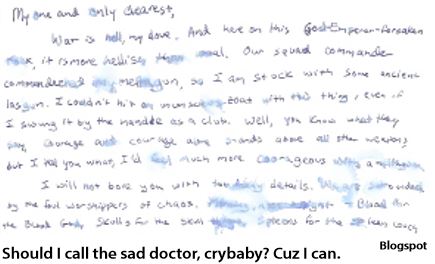 My one and only dearest,
War is hell, my dove. And here on this God-Emperor-forsaken
rock, it is more hellish than usual. Our squad commander
commandeered my meltagun, so I am stuck with some ancient
lasgun. I couldn't hit an unconscious with this thing, even if
I swung it by the handle as a club. Well, you know what they
say, courage and courage alone stands above all other weapons,
but I tell you what, I'd feel much more courageous with a meltagun.
I will not bore you with too many details. We are surrounded
by the foul worshippers of chaos. Blood for
the Blood God, Skulls for the for the
Blogspot
Should I call the sad doctor, crybaby? Cuz I can.